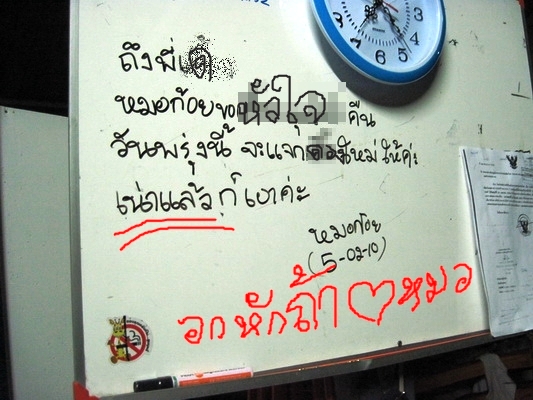 ถึงพี่
หมอก้อยขอหัวใจ คืน
วันพรุ่งนี้ จะแจก ใหม่ ให้ค่ะ
เน่าแล้ว ก็ เอาค่ะ
หมอก้อย
(5-02-10)
อกหักถ้า♡หมอ